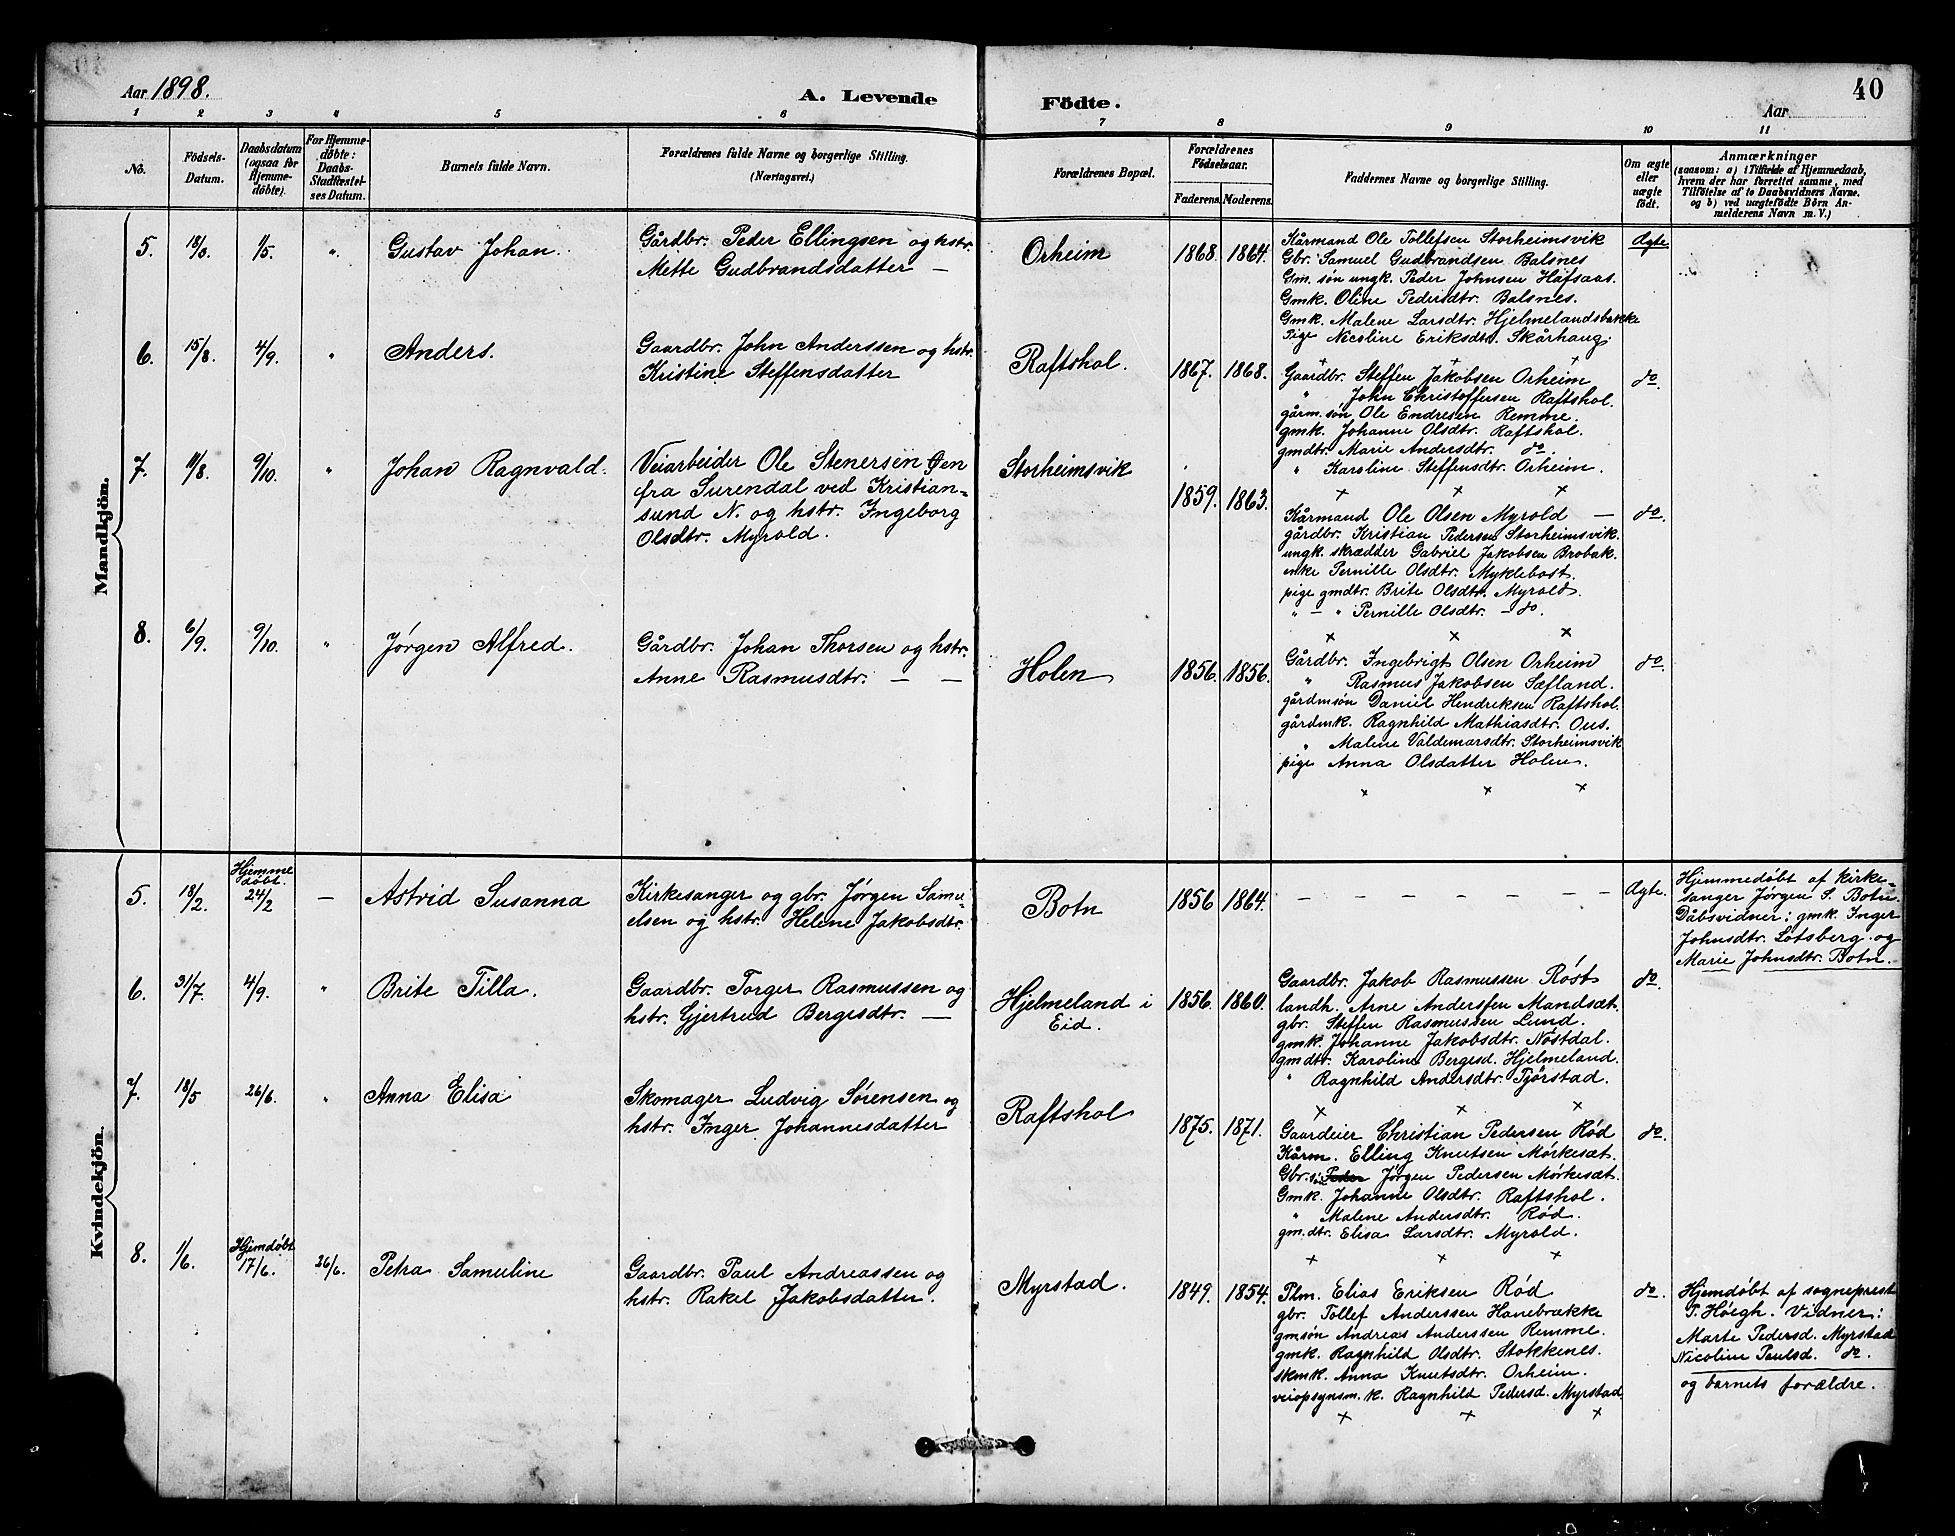 Aar 1898.
A. Levende
Födte.
Aar
40
1 2 3 4 5 6 7 8 9 10 11
No.
Födsels-
Datum.
Daabsdatum
(ogsaa for
Hjemme-
döbte).
For Hjemme-
döbte:
Daabs-
Stadfæstel-
ses Datum.
Barnets fulde Navn.
Forældrenes fulde Navne og borgerlige Stilling.
(Næringsvei.)
Forældrenes Bopæl.
Forældrenes
Födselsaar.
Faderens.
Moderens.
Faddernes Navne og borgerlige Stilling.
Om ægte
eller
uægte
födt.
Anmærkninger
(saasom: a) i Tilfælde af Hjemmedaab,
hvem der har forrettet samme, med
Tilföielse af to Daabsvidners Navne,
og b) ved uægtefödte Börn An-
melderens Navn m. V.)
Mandkjön.
5. 18/3 1/5. ". Gustav Johan.
Gårdbr. Peder Ellingsen og hstr.
Mette Gudbrandsdatter —
Orheim 1868. 1864.
Kårmand Ole Tollefsen Storheimsvik
Gbr. Samuel Gudbrandsen Balsnes
Gm. søn ungk. Peder Johnsen Hafsaas.
Gmk. Oline Pedersdtr. Balsnes.
Gmk. Malene Larsdtr. Hjelmelandsbakke
Pige Nicoline Eriksdtr. Skårhaug.
x x x
Ægte
6. 15/8. 4/9. " Anders.
Gaardbr. John Anderssen og hstr.
Kristine Steffensdatter
Raftshol. 1867. 1868.
Gaardbr. Steffen Jakobsen Orheim
" John Christoffersen Raftshol.
gårm. søn Ole Endresen Remme.
gmk. Johanne Olsdtr. Raftshol.
gmdtr. Marie Andersdtr. do.
" Karoline Steffensdtr. Orheim.
x x x
do.
7. 11/8 9/10. " Johan Ragnvald.
Veiarbeider Ole Stenersen Øen
fra Surendal ved Kristian-
sund N. og hstr. Ingeborg
Olsdtr. Myrold.
Storheimsvik 1859. 1863.
Kårmand Ole Olsen Myrold —
gårdbr. Kristian Pedersen Storheimsvik.
ungk. skrædder Gabriel Jakobsen Brobak.
enke Pernille Olsdtr. Myklebost.
pige gmdtr. Brite Olsdtr. Myrold
" — " Pernille Olsdtr. — do.
x x x
do.
8. 6/9. 9/10. " Jørgen Alfred.
Gårdbr. Johan Thorsen og hstr.
Anne Rasmusdtr. — —
Holen 1856. 1856.
Gårdbr. Ingebrigt Olsen Orheim
" Rasmus Jakobsen Sæfland.
gårdmsøn Daniel Hendriksen Raftshol.
gårdmk. Ragnhild Mathiasdtr. Ous.
" Malene Valdemarsdtr. Storheimsvik
pige Anna Olsdatter Holen.
x x x
do.
Kvindekjön.
5. 18/2. Hjemme
døbt.
24/2 — Astrid Susanna
Kirkesanger og gbr. Jørgen Samu-
elsen og hstr. Helene Jakobsdtr.
Botn 1856 1864.
— — — — — — —
Ægte.
Hjemmedøbt af kirke-
sanger Jørgen S. Botn.
Dåbsvidner: gmk. Inger
Johnsdtr. Lotsberg og
Marie Johnsdtr. Botn.
6. 31/7. 4/9. " Brite Tilla.
Gaardbr. Torger Rasmussen og
hstr. Gjertrud Bergesdtr. —
Hjelmeland i
Eid.
1856. 1860.
Gaardbr. Jakob Rasmussen Røst
landh. Arne Anderssen Mandsæt.
gbr. Steffen Rasmussen Lund.
gmk. Johanne Jakobsdtr. Nøstdal.
gmdtr. Karoline Bergesd. Hjelmeland.
" Ragnhild Andersdtr. Tjørstad.
x x x
do.
7. 18/5 26/6. " Anna Elisa
Skomager Ludvig Sørensen og
hstr. Inger Johannesdatter
Raftshol 1875. 1871.
Gaardeier Christian Pedersen Rød
Kårm. Elling Knutsen Mørkesæt.
Gbr. s. Peder Jørgen Pedersen Mørkesæt.
Gmk. Johanne Olsdtr. Raftshol.
" Malene Andersdtr. Rød.
gm.dtr. Elisa Larsdtr. Myrold.
x x x
do.
8. 1/6. Hjemdøbt
17/6. 26/6. Petra Samuline
Gaardbr. Paul Andreassen og
hstr. Rakel Jakobsdatter.
Myrstad. 1849. 1854.
Plm. Elias Eriksen Rød
gbr. Tollef Anderssen Hanebrække
gmsøn Andreas Anderssen Remme.
gmk. Ragnhild Olsdtr. Stokkenes.
skmk. Anna Knutsdtr. Orheim.
veiopsynsm. k. Ragnhild Pedersd. Myrstad
x x x
do.
Hjemdøbt af sogneprest
P. Høegh. Vidner:
Marte Pedersd. Myrstad
Nicoline Paulsd. do.
og barnets forældre.